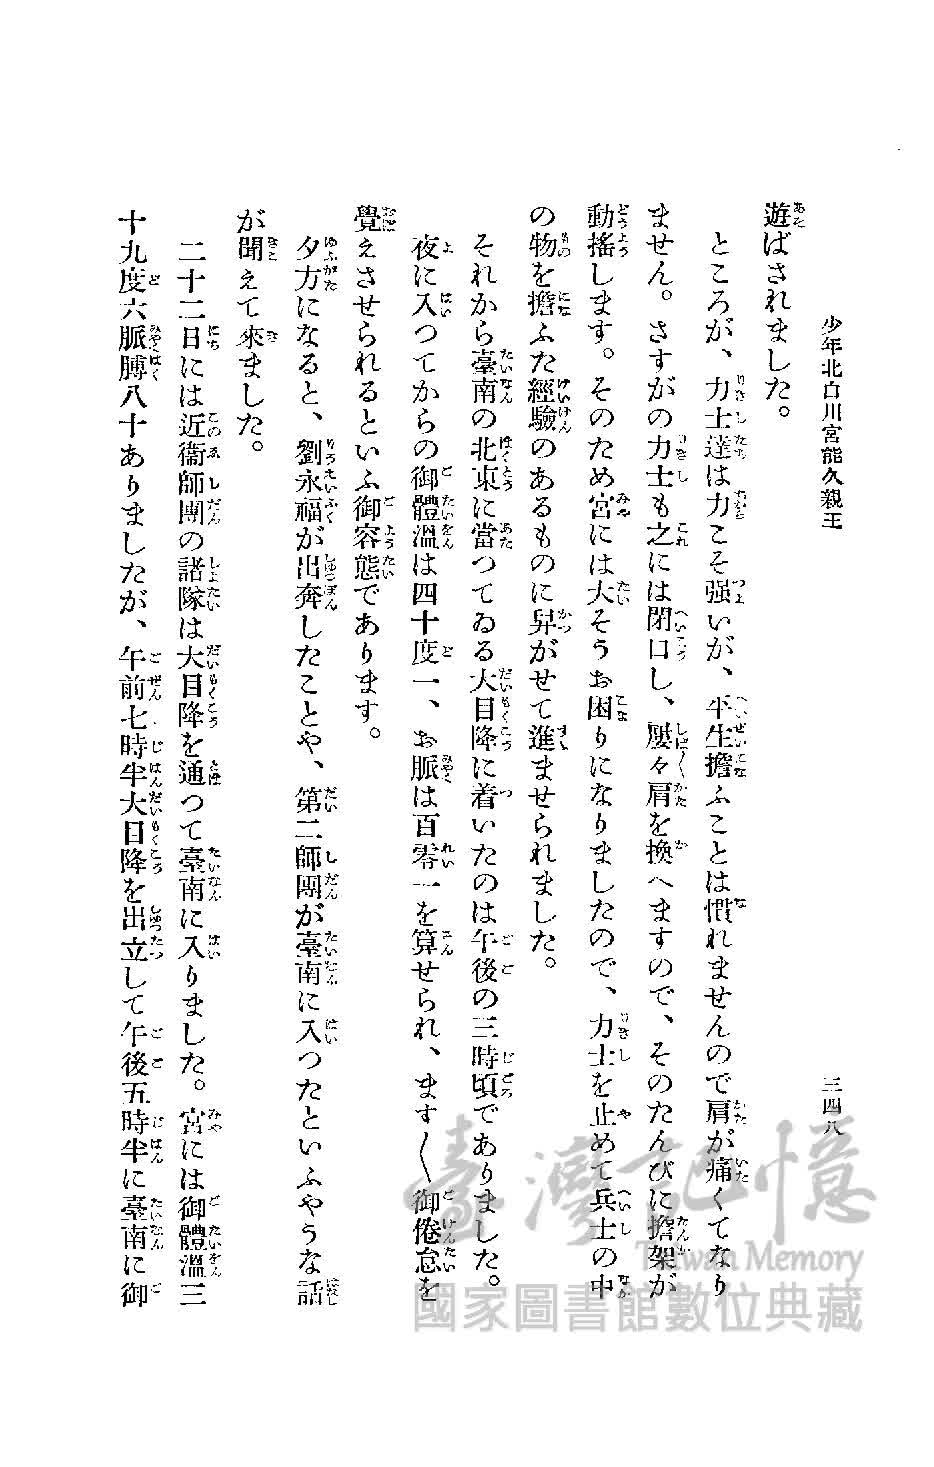 少年北白川宮能久親王
三四八
遊ばされました。
ところが、力士達は力こそ强いが、平生擔ふことは慣れませんので肩が痛くてなり
ません。さすがの力士も之には閉口し、屢々肩を換へますので、そのたんびに擔架が
動搖します。そのため宮には大そうお困りになりましたので、力士を止めて兵士の中
の物を擔ふた經驗のあるものに舁がせて進ませられました。
それから臺南の北東に當つてゐる大目降に着いたのは午後の三時頃でありました。
夜に入つてからの御體溫は四十度一、お脈は百零一を算せられ、ます〱御倦怠を
覺えさせられるといふ御容態であります。
夕方になると、劉永福が出奔したことや、第二師團が臺南に入つたといふやうな話
が聞えて來ました。
二十二日には近衞師團の諸隊は大目降を通つて臺南に入りました。宮には御體溫三
十九度六脈膊八十ありましたが、午前七時半大目降を出立して午後五時半に臺南に御
臺灣記憶
Taiwan Memory
國家圖書館數位典藏